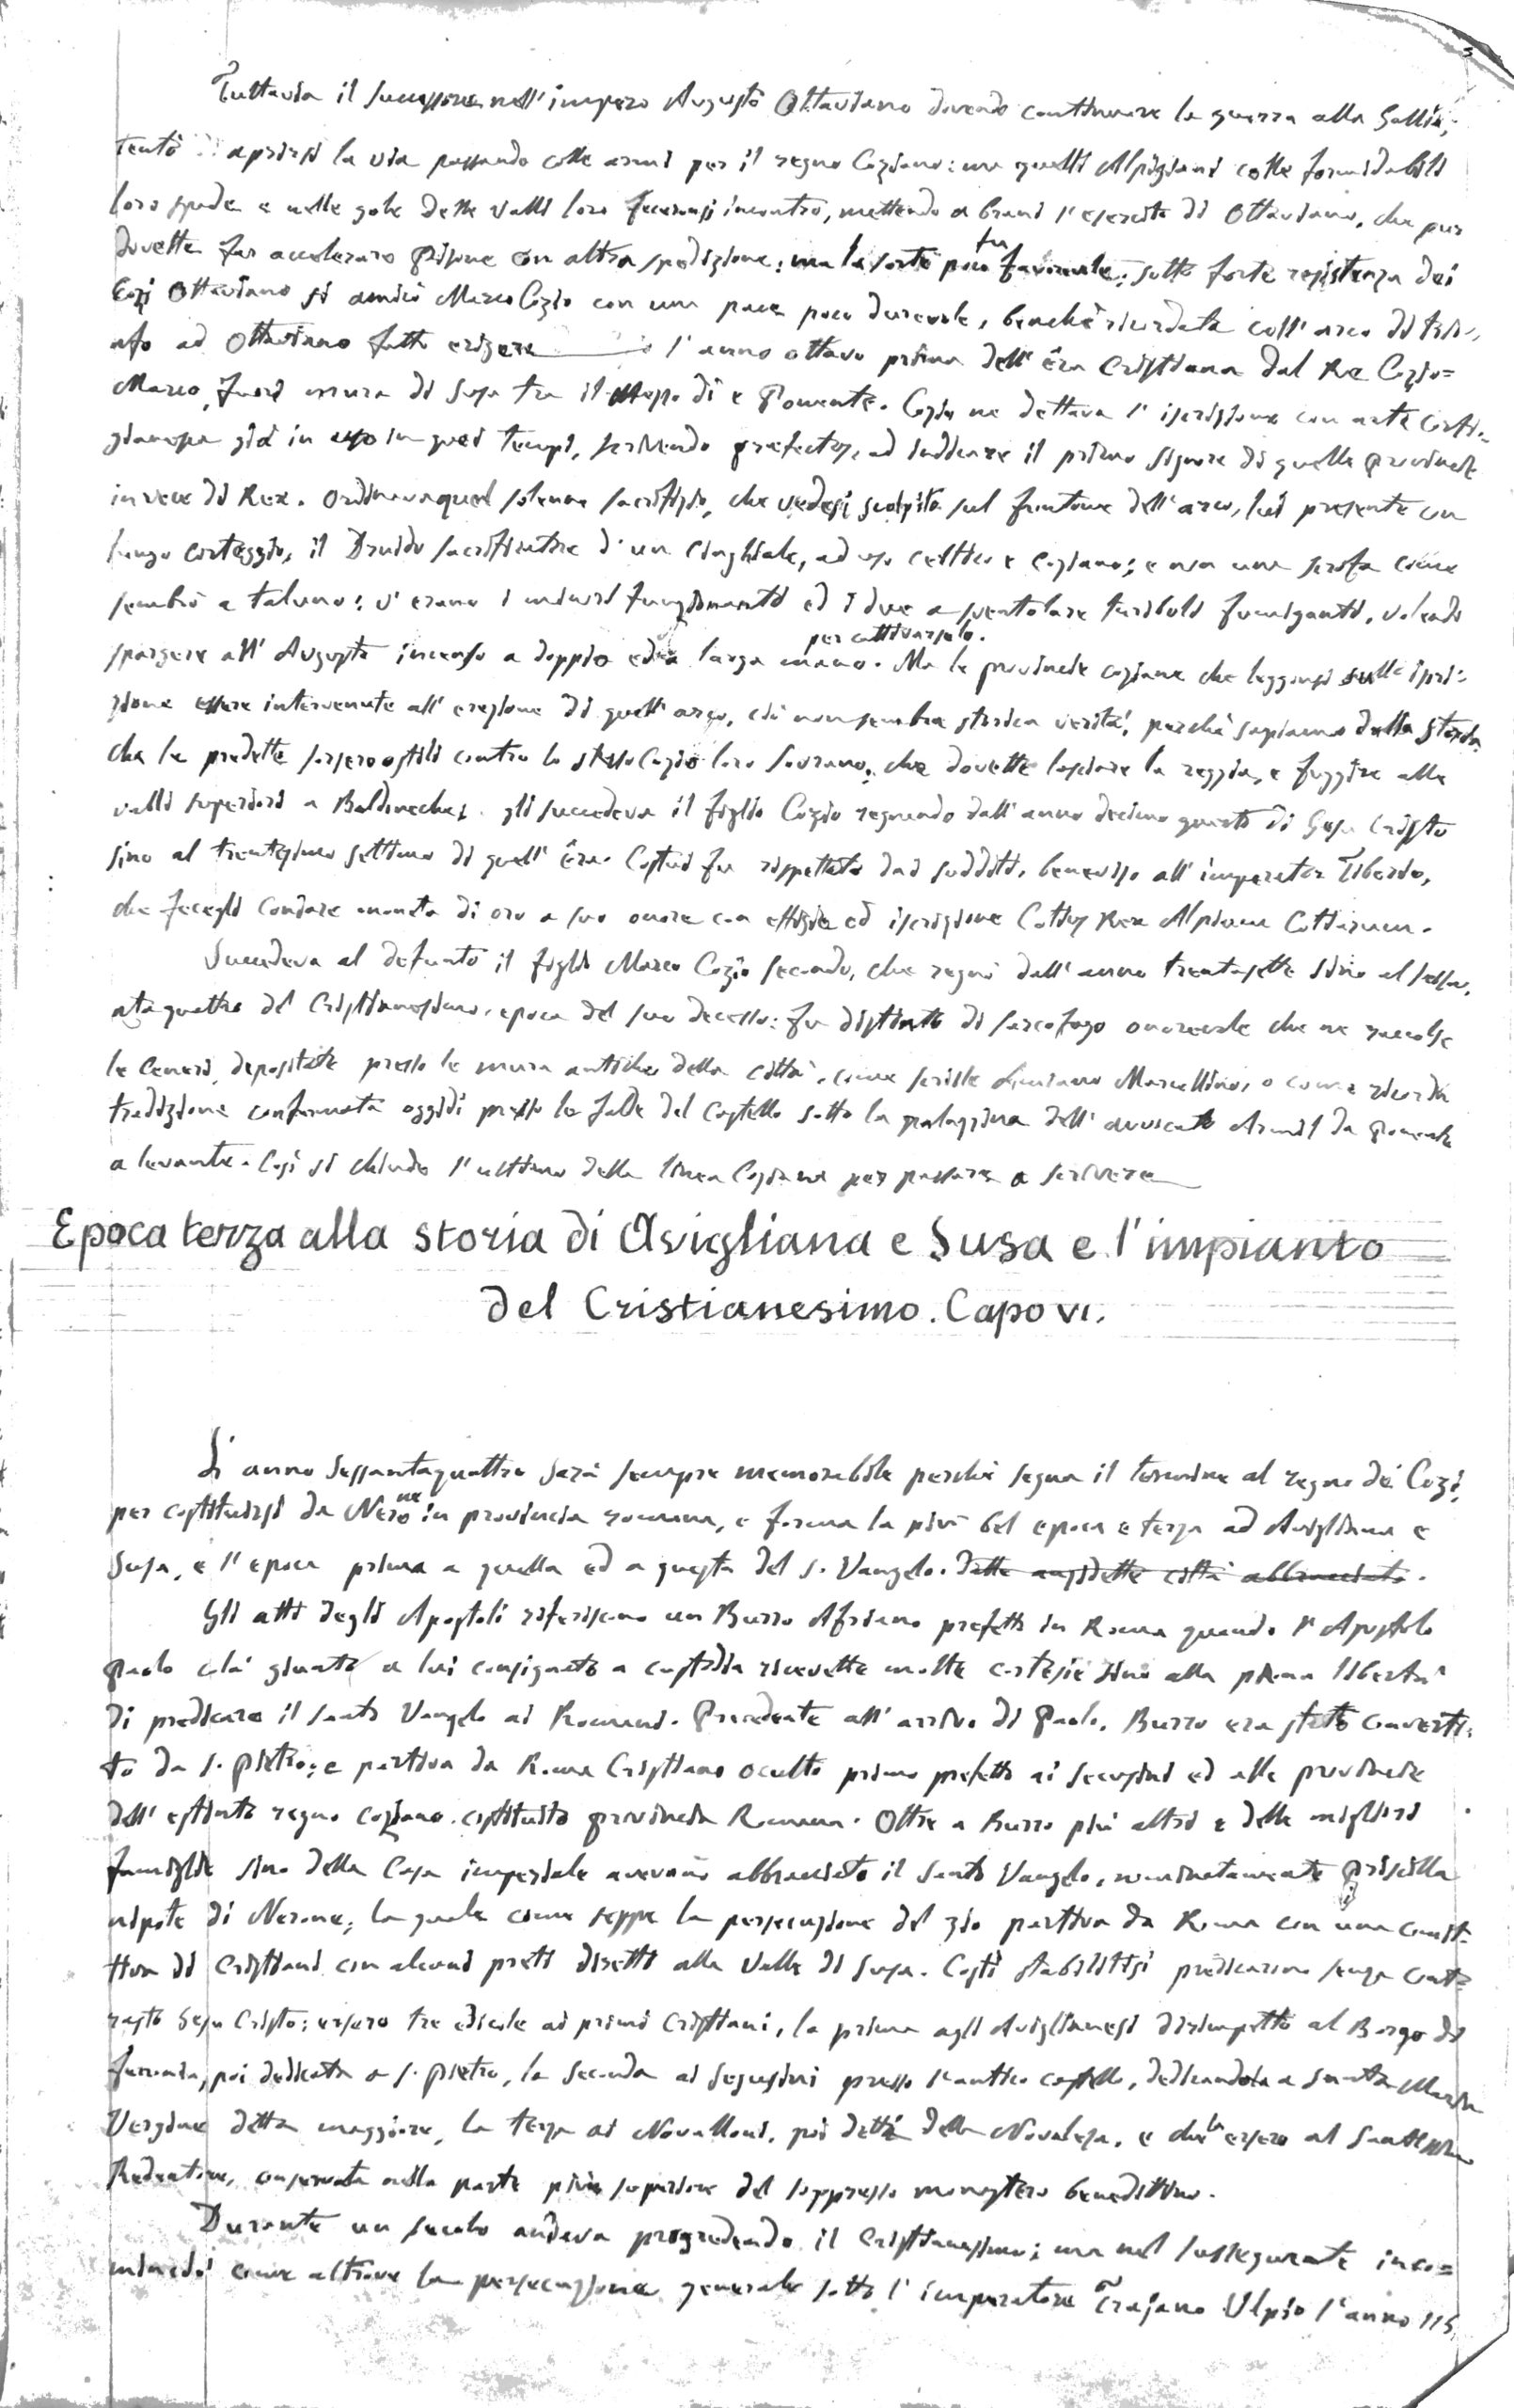 Tuttavia il successore nell'impero Augusto Ottaviano dovendo continuare la guerra alla Gallia,
tentò aprirsi la via passando colle armi per il regno Coziano: ma quelli Alpigiani colle formidabili
loro spade e nelle gole delle valli loro fecersi incontro, mettendo a brani l'esercito di Ottaviano, che pur
dovette far accelerare Pisone con altra spedizione: ma la sorte poco fu favorevole: sotto forte resistenza dei
Cozi Ottaviano si amicò Marco Cozio con una pace poco durevole, benchè ricordata coll'arco di tri-
nfo ad Ottaviano fatto erigere l'anno ottavo prima dell'êra Cristiana dal Re Cozio=
Marco, fuori mura di Susa tra il Mezzo dì e Ponente. Cozio ne dettava l'iscrizione con arte corti-
gianesca già in uso in quei tempi, scrivendo prefectus, ad indicare il primo signore di quelle provincie
in vece di Rex. Ordinava quel solenne sacrifizio, che vedesi scolpito sul frontone dell'arco, lui presente con
lungo corteggio, il Druido sacrificatore d'un cinghiale, ad uso celtico e coziano; e non una scrofa come
sembrò a taluno: v'erano i minori funzionanti ed i due a sventolare turiboli fumiganti, volendo
spargere all'Augusto incenso a doppio ed a larga mano per cattivarselo. Ma le provincie coziane che leggonsi sulla iscri-
zione essere intervenute all'erezione di quell'arco, ciò non sembra storica verità, perchè sapiamo dalla storia
che le predette sorsero ostili contro lo stesso Cozio loro Sovrano, che dovette lasciare la reggia, e fuggire alle
valli superiori a gli succedeva il figlio Cozio regnando dall'anno decimo quarto di Gesu Cristo
sino al trentesimo settimo di quell'êra. Costui fu rispettato dai sudditi, beneviso all'imperator Tiberio,
che fecegli coniare moneta di oro a suo onore con effigie ed iscrizione Cottius Rex Alpium Cottiarum.
Succedeva al defunto il figlio Marco Cozio secondo, che regnò dall'anno trentasette sino al sessa,
ntaquattro del Cristianesimo, epoca del suo decesso: fu distinto di sarcofago onorevole che ne raccolse
le ceneri, depositate presso le mura antiche della città, come scrisse Marcellino, o come ricorda
tradizione confermata oggidì presso le falde del Castello sotto la palazzina dell'avvocato da Ponente
a levante. Così si chiude l'ultimo della linea Coziana per passare a scrivere
Epoca terza alla storia di Avigliana e Susa e l'impianto
del Cristianesimo. Capo VI.
L'anno sessantaquattro sarà sempre memorabile perchè segna il termine al regno dei Cozi,
per costituirsi da Nerone in provincia romana, e forma la più bel epoca e terza ad Avigliana e
Susa, e l'epoca prima a quella ed a questa del S. Vangelo. dalle anzidette città abbracciato.
Gli atti degli Apostoli riferiscono un Burro Afriano prefetto in Roma quando l'Apostolo
Paolo colà giunto a lui consignato a custodia ricevette molte cortesie sino alla piena libertà
di predicare il santo Vangelo ai Romani. Precedente all'arrivo di Paolo, Burro era stato converti,
to da S. Pietro; e partiva da Roma Cristiano occulto primo prefetto ai Secusini ed alle provincie
dell'estinto regno coziano costituito provincia Romana. Oltre a Burro più altri e delle migliori
famiglie sino della Casa imperiale avevano abbracciato il Santo Vangelo, nominatamente Priscilla
nipote di Nerone, la quale come seppe la persecuzione del zio partiva da Roma con una comit-
tiva di Cristiani con alcuni preti diretti alla Valle di Susa. Costì stabilitisi predicarono senza cont-
rasto Gesu Cristo; ersero tre edicole ai primi Cristiani, la prima agli Aviglianesi dirimpetto al Borgo di
poi dedicata a S. Pietro, la seconda ai Segusini presso l'antico castello, dedicandola a Santa Maria
Vergine detta maggiore, la terza ai Novaliani, poi detti della Novalesa, e che la ersero al Santissimo
Redentore, conservata nella parte più superiore del soppresso monastero benedittino.
Durante un secolo andava progredendo il Cristianesimo; ma nel susseguente inco=
minciò come altrove la persecuzione generale sotto l'imperatore Trajano Ulpio l'anno 115